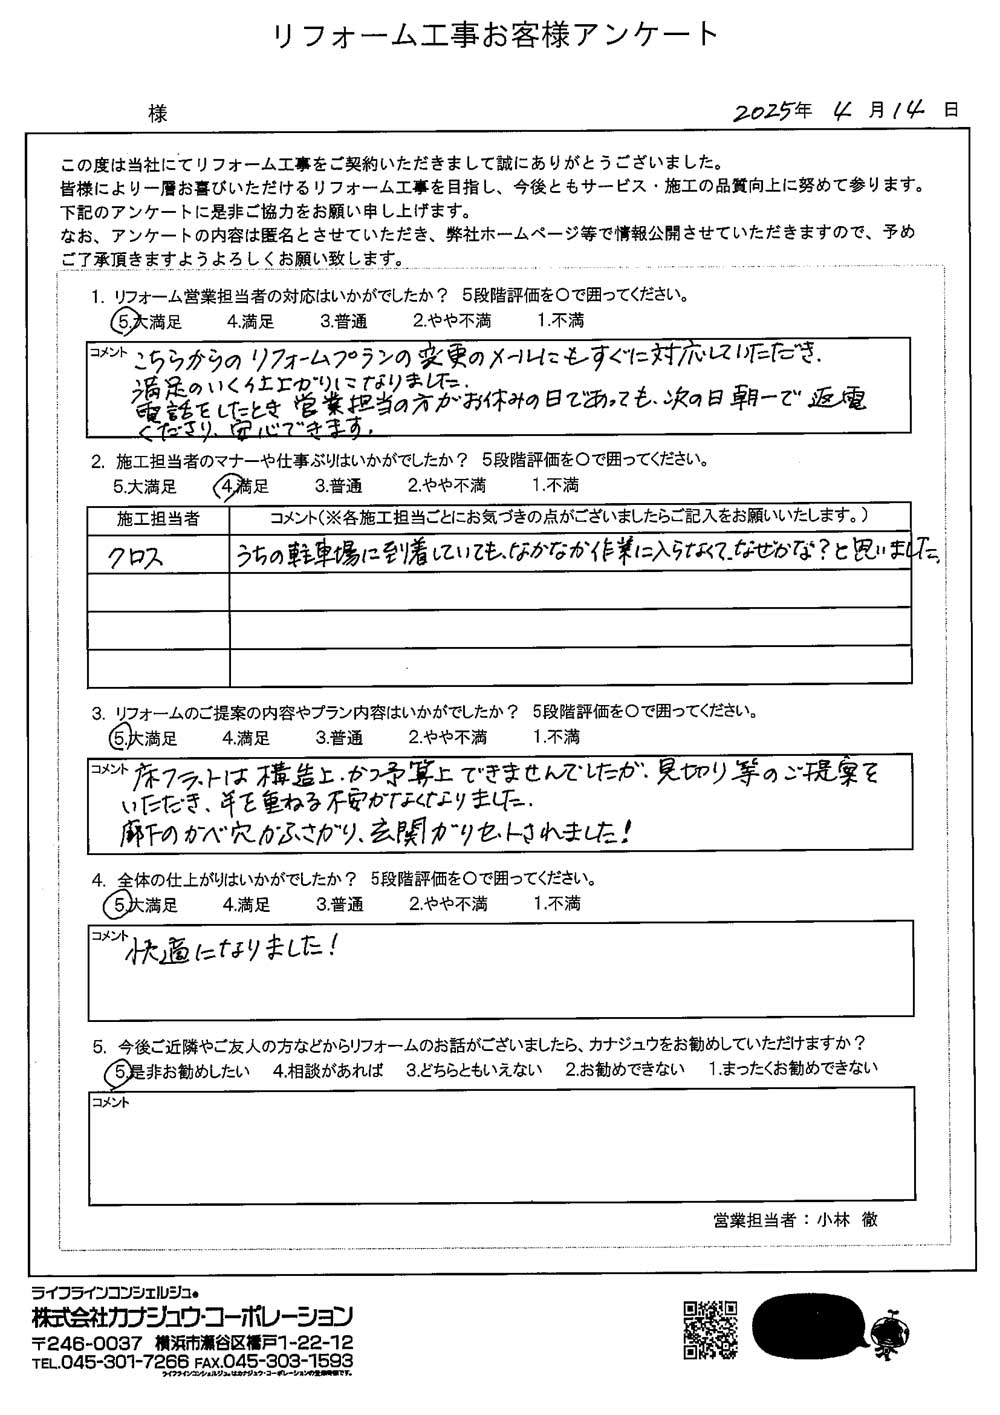 リフォーム工事お客様アンケート
様 2025年 4月14日
この度は当社にてリフォーム工事をご契約いただきまして誠にありがとうございました。
皆様により一層お喜びいただけるリフォーム工事を目指し、今後ともサービス・施工の品質向上に努めて参ります。
下記のアンケートに是非ご協力をお願い申し上げます。
なお、アンケートの内容は匿名とさせていただき、弊社ホームページ等で情報公開させていただきますので、予め
ご了承頂きますようよろしくお願い致します。
1. リフォーム営業担当者の対応はいかがでしたか? 5段階評価を○で囲ってください。
5.大満足 4.満足 3.普通 2.やや不満 1.不満
コメント こちらからのリフォームプランの変更のメールにもすぐに対応していただき、
満足のいく仕上がりになりました。
電話をしたとき営業担当の方がお休みの日であっても、次の日朝一で返電
くださり、安心できます。
2. 施工担当者のマナーや仕事ぶりはいかがでしたか? 5段階評価を○で囲ってください。
5.大満足 4.満足 3.普通 2.やや不満 1.不満
施工担当者 コメント(※各施工担当ごとにお気づきの点がございましたらご記入をお願いいたします。)
クロス うちの駐車場に到着していても、なかなか作業に入らなくて、なぜかな?と思いました。
3. リフォームのご提案の内容やプラン内容はいかがでしたか? 5段階評価を○で囲ってください。
5.大満足 4.満足 3.普通 2.やや不満 1.不満
コメント 床フラットは構造上、かつ予算上できませんでしたが、見切り等のご提案を
いただき、年を重ねる不安がなくなりました。
廊下のかべ穴がふさがり、玄関がリセットされました!
4. 全体の仕上がりはいかがでしたか? 5段階評価を○で囲ってください。
5.大満足 4.満足 3.普通 2.やや不満 1.不満
コメント 快適になりました!
5. 今後ご近隣やご友人の方などからリフォームのお話がございましたら、カナジュウをお勧めしていただけますか?
5.是非お勧めしたい 4.相談があれば 3.どちらともいえない 2.お勧めできない 1.まったくお勧めできない
コメント
営業担当者:小林 徹
ライフラインコンシェルジュ。
株式会社カナジュウ・コーポレーション
〒246-0037 横浜市瀬谷区橋戸1-22-12
TEL.045-301-7266 FAX.045-303-1593
ライフラインコンシェルジュ。はカナジュウ・コーポレーションの登録商標です。